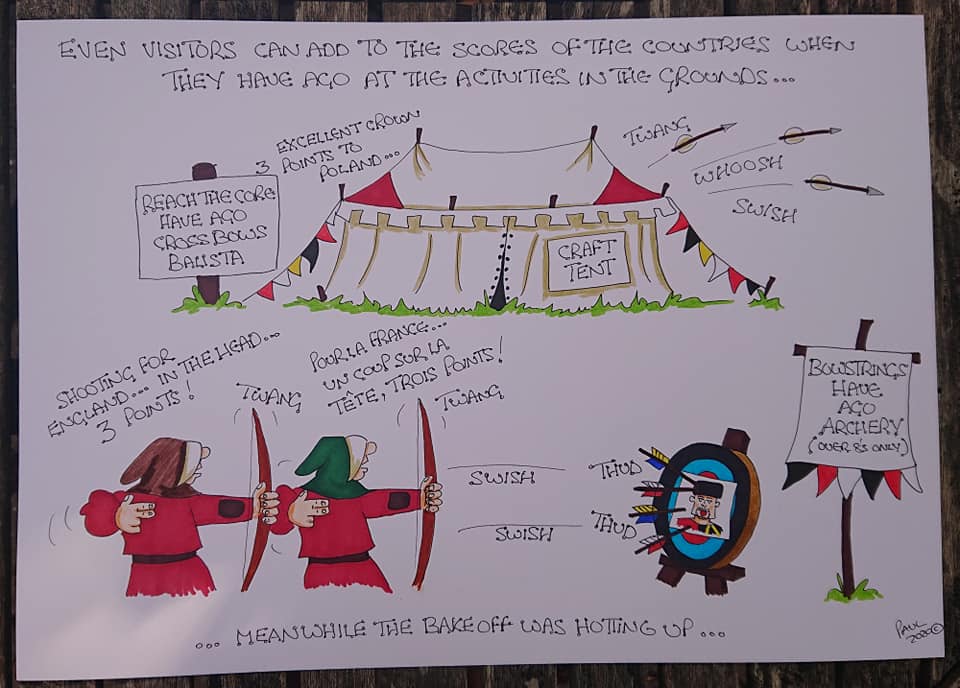 EVEN VISITORS CAN ADD TO THE SCORES OF THE COUNTRIES WHEN
THEY HAVE AGO AT THE ACTIVITIES IN THE GROUNDS...
3 EXCELLENT CROWN
POINTS TO
POLAND...
TWANG
WHOOSH
SWISH
REACH THE CORE
HAVE AGO
CROSS BOWS
BALISTA
CRAFT
TENT
SHOOTING FOR
ENGLAND... IN THE HEAD...
3 POINTS!
TWANG
POUR LA FRANCE...
UN COUP SUR LA
TÊTE, TROIS POINTS!
TWANG
SWISH
THUD
SWISH
THUD
BOWSTRINGS
HAVE
AGO
ARCHERY
(OVER 8'S ONLY)
... MEANWHILE THE BAKE OFF WAS HOTTING UP...
PAUL
2020©